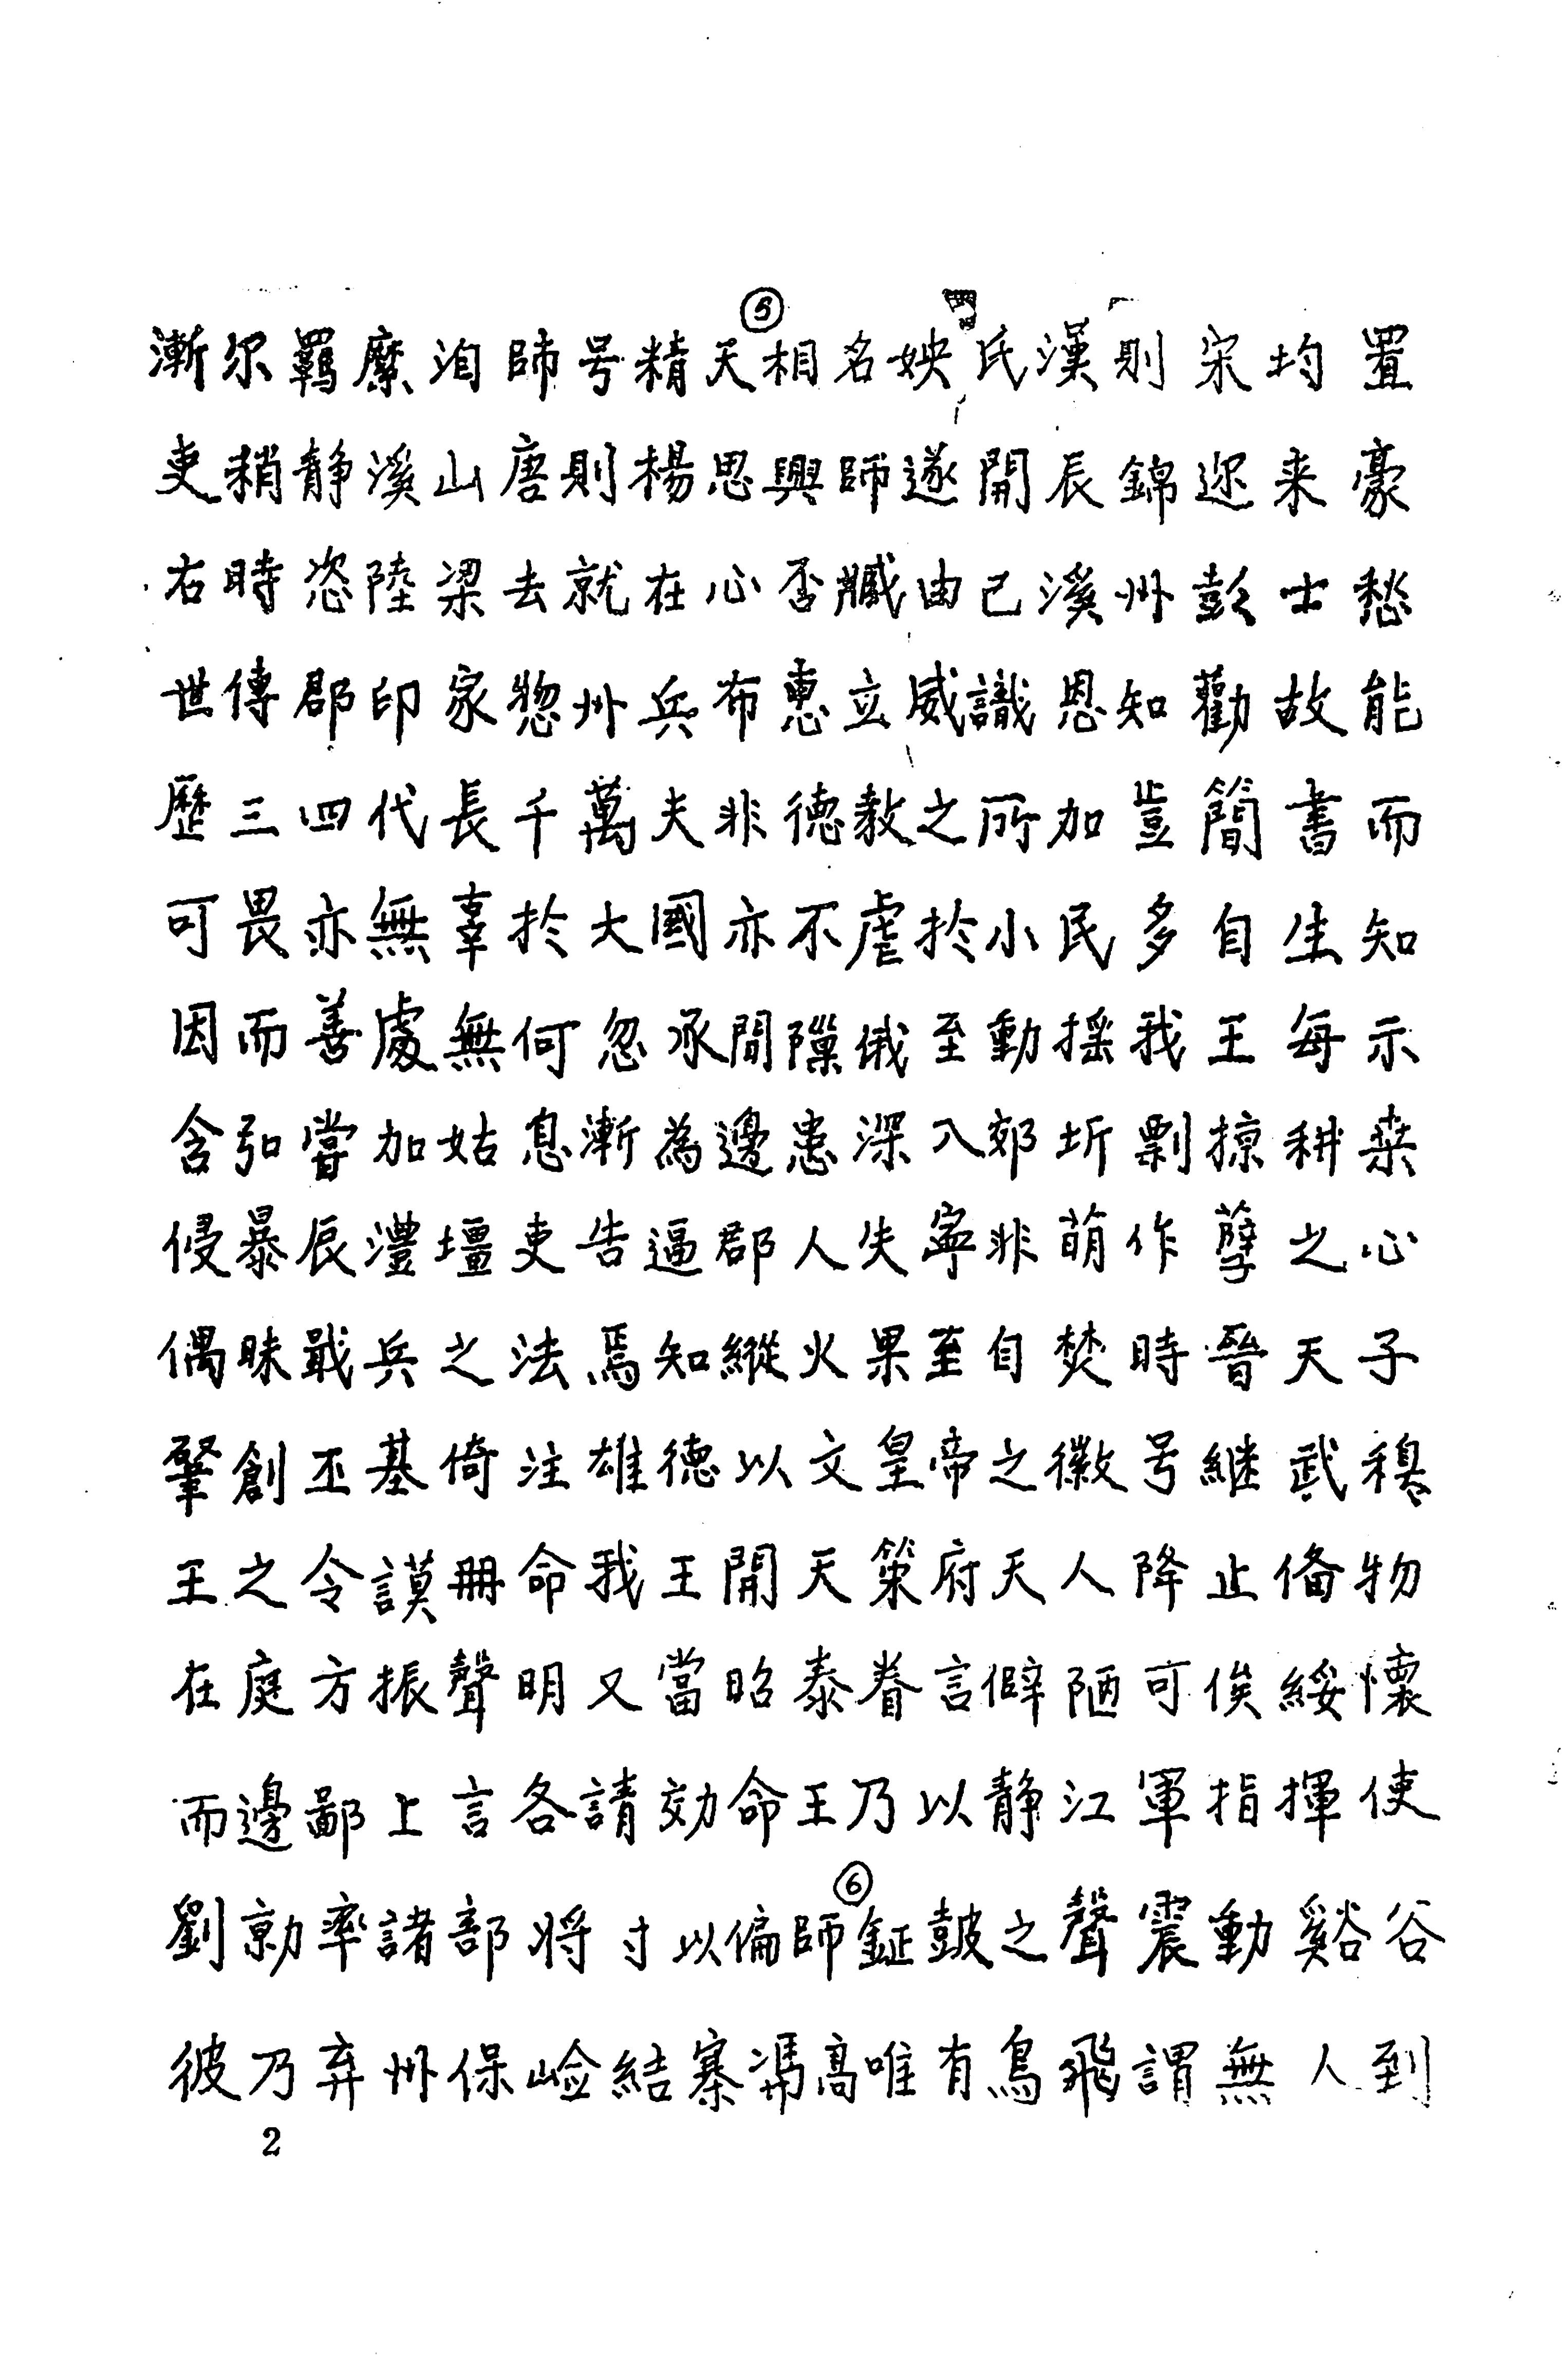 漸尔羈縻洎師号精天⑤相名姎氏漢則宋均置
吏稍静溪山唐則楊思興師遂開辰錦迩来豪
右時恣陸梁去就在心否臧由己溪州彭士愁
世傳郡印家惣州兵布惠立威識恩知勸故能
歷三四代長千萬夫非德教之所加豈簡書而
可畏亦無辜於大國亦不虐於小民多自生知
因而善處無何忽承間隟俄至動搖我王每示
含弘嘗加姑息漸為邊患深入郊圻剽掠耕桒
侵暴辰澧壃吏告逼郡人失寧非萌作孽之心
偶昧戢兵之法焉知縱火果至自焚時晉天子
肇創丕基倚注雄德以文皇帝之徽号継武穆
王之令謨冊命我王開天策府天人降止俻物
在庭方振聲明又當昭泰眷言僻陋可俟綏懷
而邊鄙上言各請効命王乃以静江軍指揮使
劉勍率諸部將寸以偏師⑥鉦皷之聲震動谿谷
彼乃弃州保嶮結寨馮高唯有鳥飛謂無人到
2